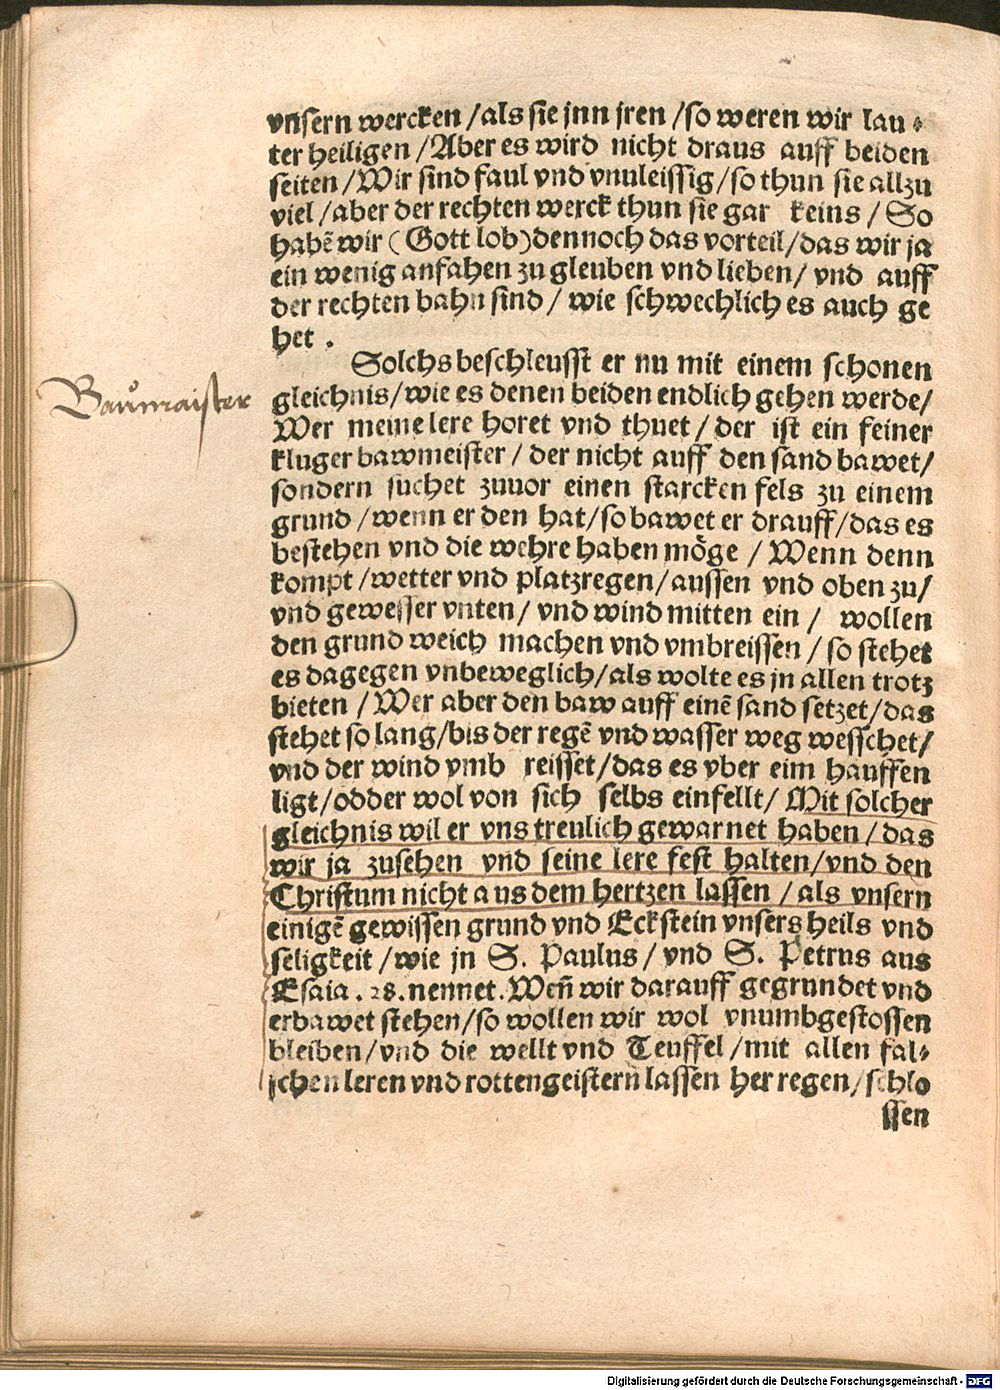 vnsern wercken /als sie jnn jren /so weren wir lau⸗
ter heiligen /Aber es wird nicht draus auff beiden
seiten /Wir sind faul vnd vnuleissig /so thun sie allzu
viel /aber der rechten werck thun sie gar keins / So
habē wir (Gott lob) dennoch das vorteil/das wir ja
ein wenig anfahen zu gleuben vnd lieben/ vnd auff
der rechten bahn sind/ wie schwechlich es auch ge
het .
Solchs beschleusst er nu mit einem schonen
Baůmaister
gleichnis/wie es denen beiden endlich gehen werde/
Wer meine lere horet vnd thuet/ der ist ein feiner
kluger bawmeister / der nicht auff den sand bawet/
sondern suchet zuuor einen starcken fels zu einem
grund /wenn er den hat/so bawet er drauff/das es
bestehen vnd die wehre haben möge / Wenn denn
kompt /wetter vnd platzregen/aussen vnd oben zu/
vnd gewesser vnten/ vnd wind mitten ein / wollen
den grund weich machen vnd vmbreissen/ so stehet
es dagegen vnbeweglich/als wolte es jn allen trotz
bieten /Wer aber den baw auff einē sand setzet/das
stehet so lang/bis der regē vnd wasser weg wesschet/
vnd der wind vmb reisset/das es vber eim hauffen
ligt/odder wol von sich selbs einfellt/ Mit solcher
gleichnis wil er vns treulich gewarnet haben/das
wir ja zusehen vnd seine lere fest halten/vnd den
Christum nicht aus dem hertzen lassen /als vnsern
einigē gewissen grund vnd Eckstein vnsers heils vnd
seligkeit /wie jn S. Paulus/ vnd S. Petrus aus
Esaia . 28. nennet. Weñ wir darauff gegrundet vnd
erbawet stehen/so wollen wir wol vnumbgestossen
bleiben/vnd die wellt vnd Teuffel /mit allen fal⸗
schen leren vnd rottengeistern lassen her regen/schlo
ssen
Digitalisierung gefördert durch die Deutsche Forschungsgemeinschaft - DFG